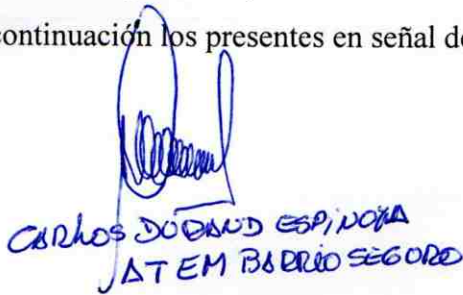 continuación los presentes en señal de
CARLOS DURAND ESPINOZA
AT EM BARRIO SEGURO